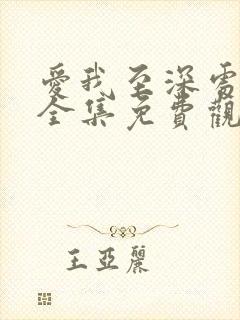 愛我至深電
全集免費觀
王亞麗